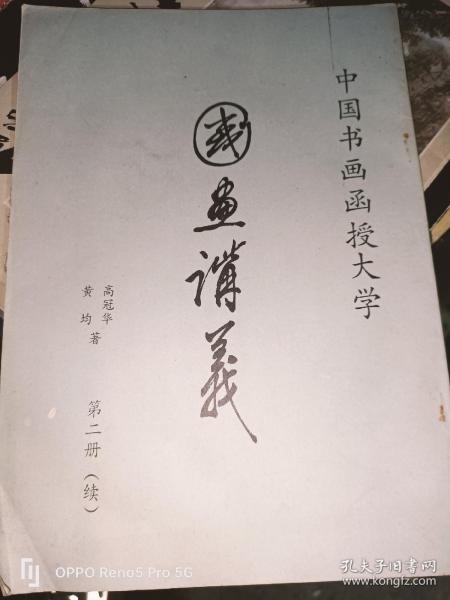 中国书画函授大学
國畫講義
高冠华
黄均著
第二册(续)
OPPO Reno5 Pro 5G
孔夫子旧书网
www.kongfz.com